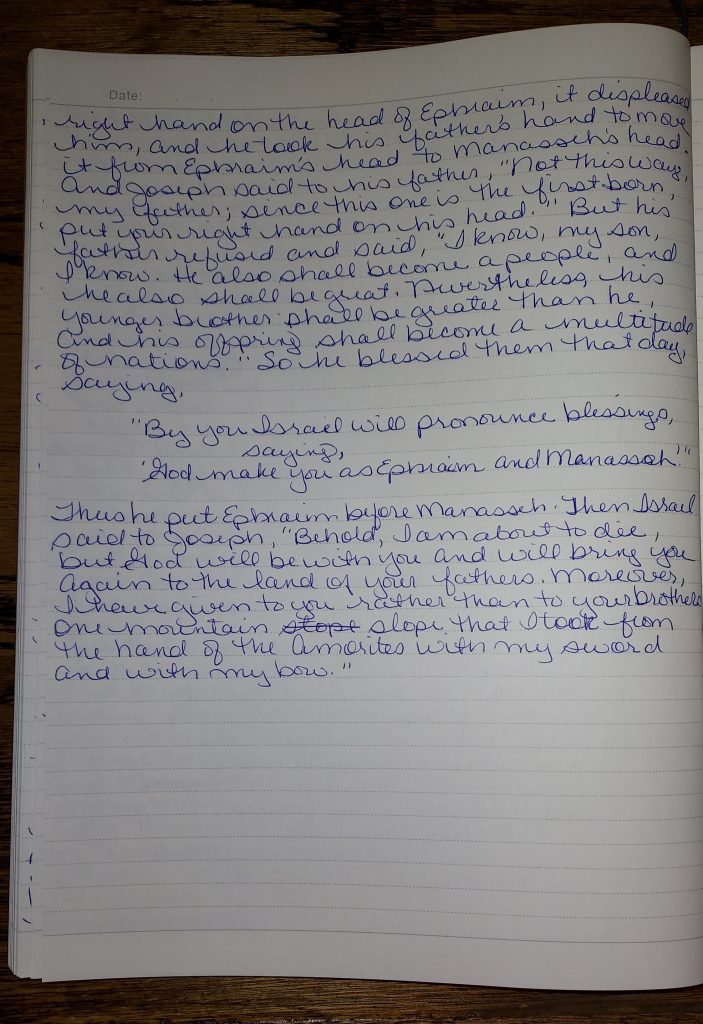 Date:
right hand on the head of Ephraim, it displeased
him, and he took his father's hand to move
it from Ephraim's head to Manasseh's head.
And Joseph said to his father, "Not this way,
my father; since this one is the firstborn,
put your right hand on his head." But his
father refused and said, "I know, my son,
I know. He also shall become a people, and
he also shall be great. Nevertheless, his
younger brother shall be greater than he,
and his offpring shall become a multitude
of nations." So he blessed them that day,
saying,
"By you Israel will pronounce blessings,
saying,
'God make you as Ephraim and Manasseh.'"
Thus he put Ephraim before Manasseh. Then Israel
said to Joseph, "Behold, I am about to die,
but God will be with you and will bring you
again to the land of your fathers. Moreover,
I have given to you rather than to your brothers
one mountain slope slope that I took from
the hand of the Amorites with my sword
and with my bow."